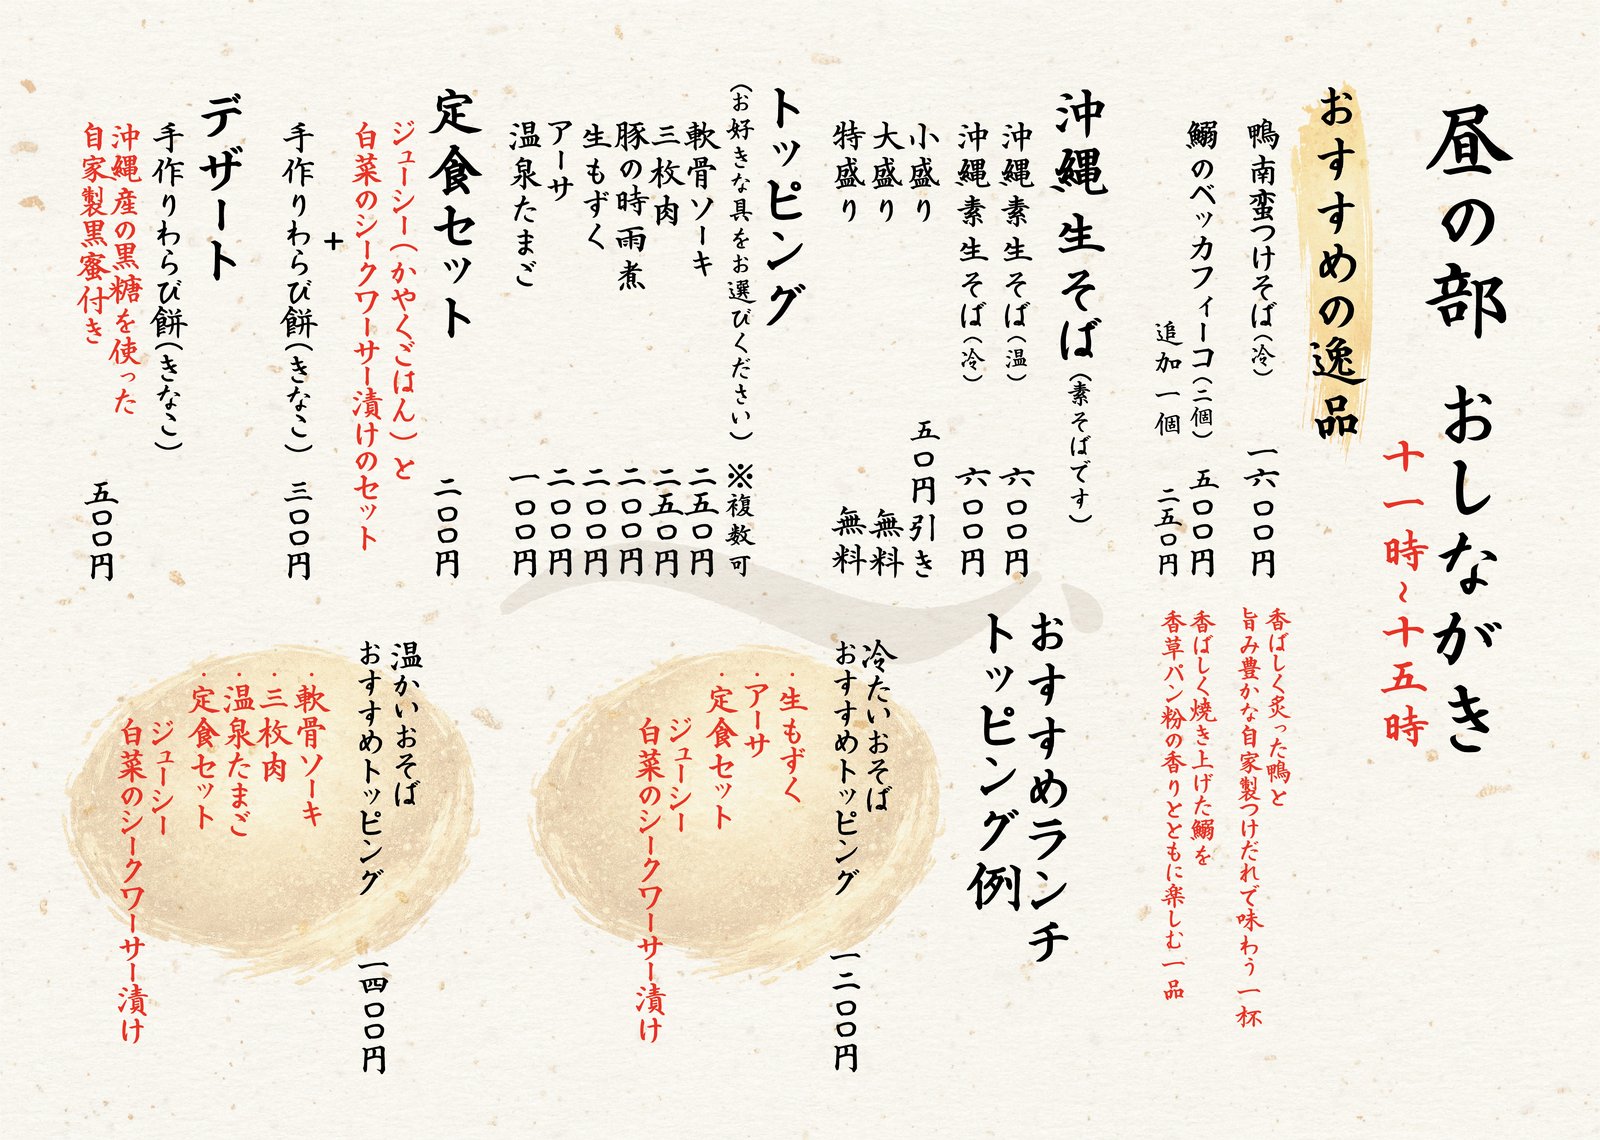 昼の部 おしながき
十一時~十五時
おすすめの逸品
鴨南蛮つけそば(冷) 一六〇〇円
香ばしく炙った鴨と
旨み豊かな自家製つけだれで味わう一杯
鰯のベッカフィーコ(二個) 五〇〇円
追加一個 二五〇円
香ばしく焼き上げた鰯を
香草パン粉の香りとともに楽しむ一品
沖縄生そば(素そばです)
沖縄素生そば(温) 六〇〇円
沖縄素生そば(冷) 六〇〇円
小盛り 五〇円引き
大盛り 無料
特盛り 無料
トッピング
(お好きな具をお選びください) ※複数可
軟骨ソーキ 二五〇円
三枚肉 二五〇円
豚の時雨煮 二〇〇円
生もずく 二〇〇円
アーサ 二〇〇円
温泉たまご 一〇〇円
定食セット 二〇〇円
ジューシー(かやくごはん)と
白菜のシークワーサー漬けのセット
+
手作りわらび餅(きなこ) 三〇〇円
デザート
手作りわらび餅(きなこ)
沖縄産の黒糖を使った
自家製黒蜜付き
五〇〇円
おすすめランチ
トッピング例
冷たいおそば
おすすめトッピング 一二〇〇円
・生もずく
・アーサ
・定食セット
ジューシー
白菜のシークワーサー漬け
温かいおそば
おすすめトッピング 一四〇〇円
・軟骨ソーキ
・三枚肉
・温泉たまご
・定食セット
ジューシー
白菜のシークワーサー漬け